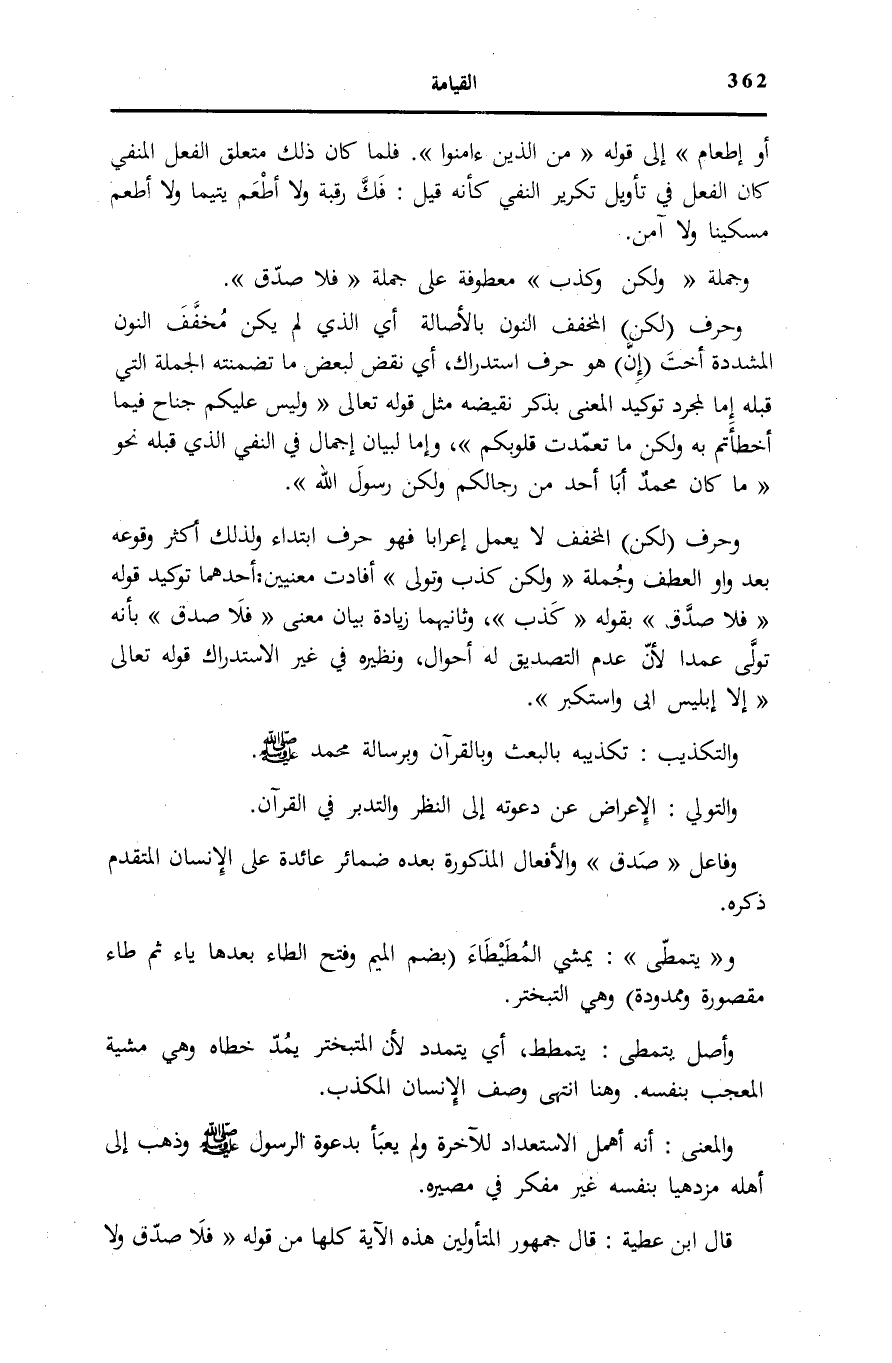 362
القيامة
أو إطعام » إلى قوله « من الذين ءامنوا ». فلما كان ذلك متعلق الفعل المنفي
كان الفعل في تأويل تكرير النفي كأنه قيل : فَكَّ رقبة ولا أطْعَم يتيما ولا أطعم
مسكينا ولا آمن.
وجملة « ولكن وكذب » معطوفة على جملة « فلا صدّق ».
وحرف (لكن) المخفف النون بالأصالة أي الذي لم يكن مُخفَّفَ النون
المشددة أختَ (إنَّ) هو حرف استدراك، أي نقض لبعض ما تضمنته الجملة التي
قبله إما لمجرد توكيد المعنى بذكر نقيضه مثل قوله تعالى « وليس عليكم جناح فيما
أخطأتم به ولكن ما تعمّدت قلوبكم »، وإما لبيان إجمال في النفي الذي قبله نحو
« ما كان محمدٌ أبَا أحد من رجالكم ولكن رسولَ الله ».
وحرف (لكن) المخفف لا يعمل إعرابا فهو حرف ابتداء ولذلك أكثر وقوعه
بعد واو العطف وجُملة « ولكن كذب وتولى » أفادت معنيين:أحدهما توكيد قوله
« فلا صدَّق » بقوله « كَذب »، وثانيهما زيادة بيان معنى « فلَا صدق » بأنه
تولَّى عمدا لأنّ عدم التصديق له أحوال، ونظيره في غير الاستدراك قوله تعالى
« إلا إبليس ابى واستكبر ».
والتكذيب : تكذيبه بالبعث وبالقرآن وبرسالة محمد ﷺ.
والتولي : الإعراض عن دعوته إلى النظر والتدبر في القرآن.
وفاعل « صَدق » والأفعال المذكورة بعده ضمائر عائدة على الإنسان المتقدم
ذكره.
و« يتمطّى » : يمشي المُطَيْطَاءَ (بضم الميم وفتح الطاء بعدها ياء ثم طاء
مقصورة وممدودة) وهي التبختر.
وأصل يتمطى : يتمطط، أي يتمدد لأن المتبختر يمُدّ خطاه وهي مشية
المعجب بنفسه. وهنا انتهى وصف الإنسان المكذب.
والمعنى : أنه أهمل الاستعداد للآخرة ولم يعبَأ بدعوة الرسول ﷺ وذهب إلى
أهله مزدهيا بنفسه غير مفكر في مصيره.
قال ابن عطية : قال جمهور المتأولين هذه الآية كلها من قوله « فلَا صدّق ولا